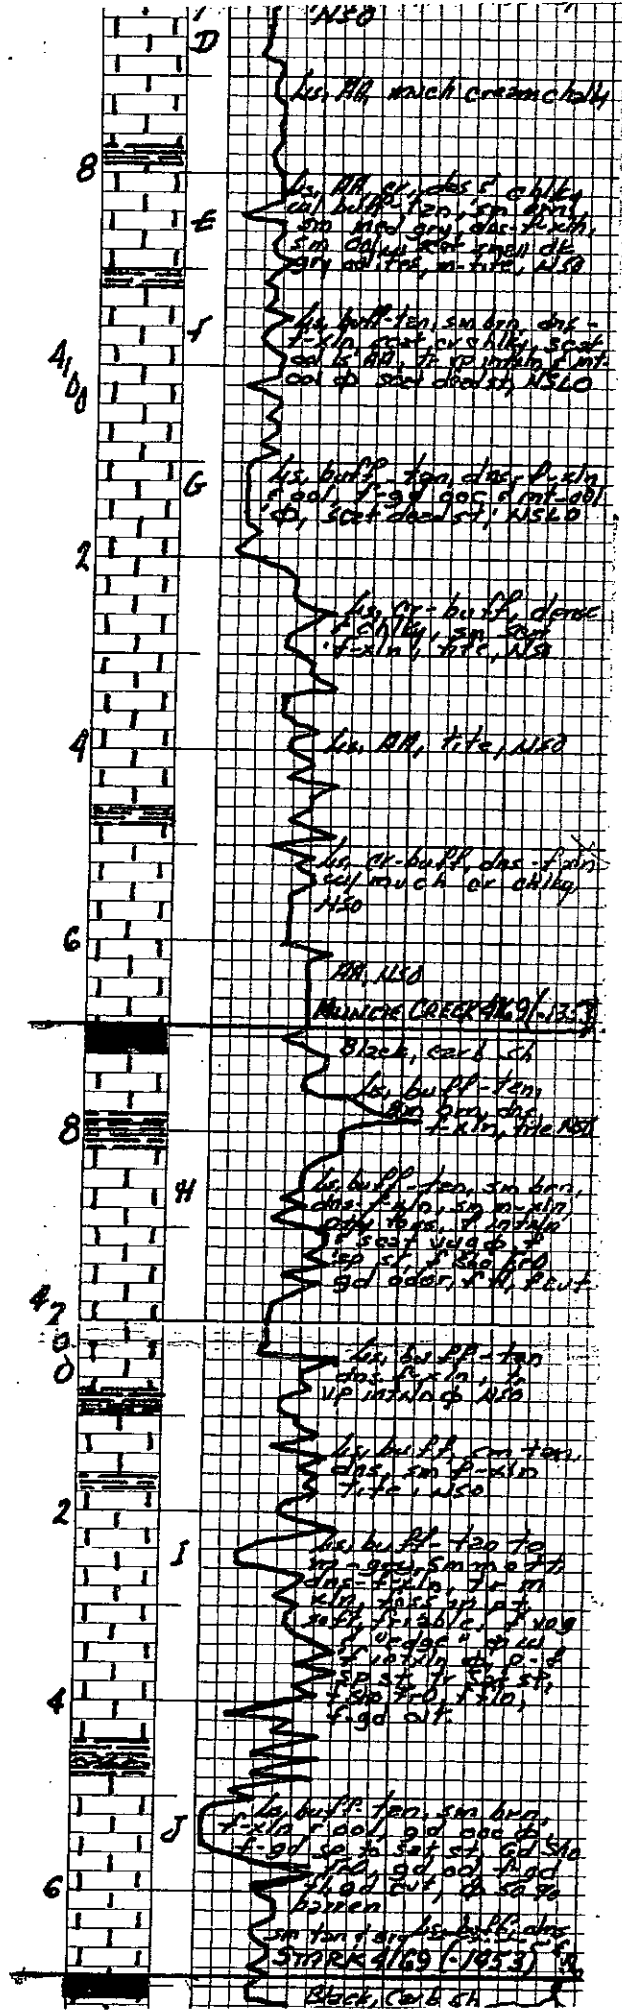 NSO
D
Ls, AA, much cream chalky
8
Ls, AA, cr, dns & chlky
w/ buff-tan, sm brns,
E
sm med gry, dns-f-xln,
sm small dk
gry oolites, m-tite, NSO
f
Ls, buff-tan, sm brn, dns-
f-xln, scat cr chlky, scat
41
00
ool is AA, tr sp intxln & int-
ool φ scat dead st, NSLO
G
Ls, buff-tan, dns-f-xln
f ool, f-gd occ int-ool
φ, scat dead st, NSLO
2
Ls, cr-buff, dense
& chlky, sm scat
f-xln, tite, NSO
4
Ls, AA, tite, NSO
Ls, cr-buff, dns-fxln
w/ much cr chlky,
NSO
6
AA, NSO
MUNCIE CREEK 4169
Black, carb sh
Ls, buff-tan,
sm brn, dns,
8
f-xln, tite NSO
H
Ls, buff-tan, sm brn,
dns-f-xln, sm m-xln,
foss, f intxln
& scat vug φ, f
sp st, f sho fr O
gd odor, f fl, f cut
42
00
Ls, buff-tan
dns f-xln, tr
vp intxln φ NSO
Ls, buff, sm tan,
dns, sm f-xln
tite, NSO
2
I
Ls, buff-tan to
m-gry, sm mott,
dns-f-xln, tr m
xln, foss in pt,
soft, friable, f vug
& "edge" φ w/
f intxln φ, p-f
sp st, tr sat st,
f sho fr O,
f-gd
4
J
Ls, buff-tan, sm brn,
f-xln & ool, gd occ φ,
f-gd sp to sat st, Gd sho
fr O, gd od, f-gd
fl, gd cut, φ
6
barren
Ls, buff, dns
sm tan
STARK 4169 (-1453)
Black, carb sh